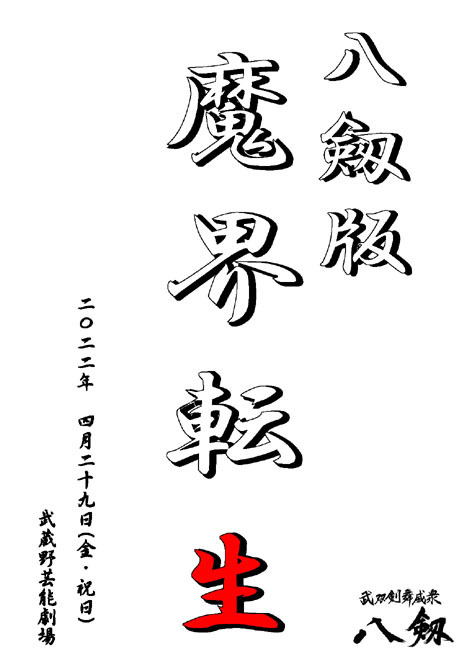 八劔版
魔界転生
二〇二二年 四月二十九日(金・祝日)
武蔵野芸能劇場
武刃剣舞威衆
八劔